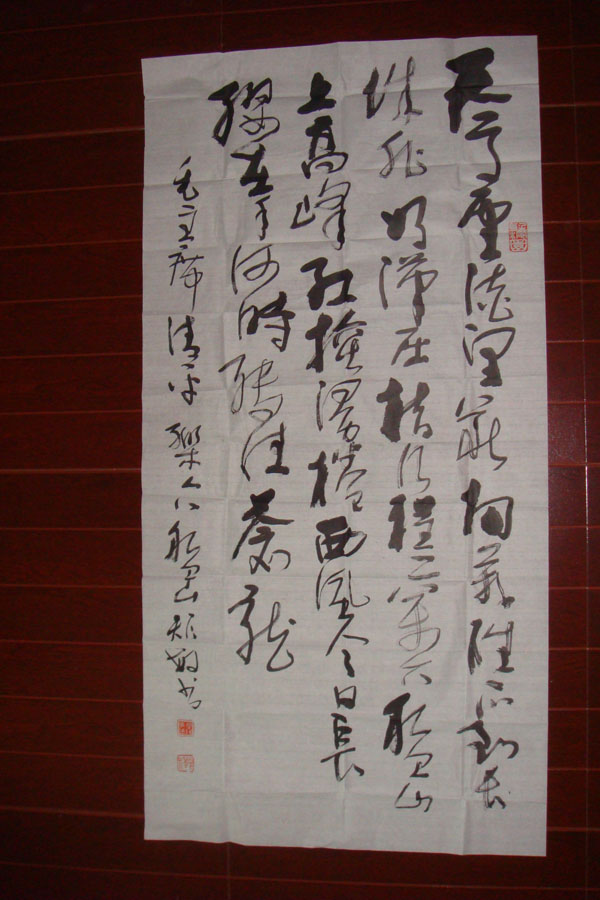 天高雲淡望断南飛雁不到長
城非好漢屈指行程二萬六盤山
上高峰紅旗漫捲西風今日長
纓在手何時縛住蒼龍
毛主席清平樂六盤山书